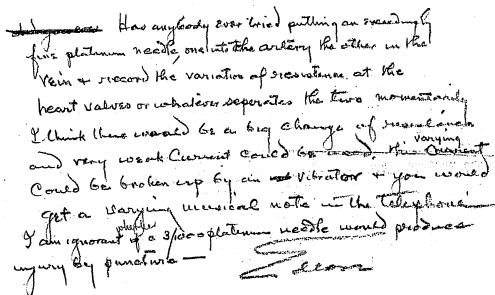 Has anybody ever tried putting an exceedingly
fine platinum needle, one into the artery the other in the
vein & record the variation of resistance at the
heart valves or whatever seperates the two momentarily
I think there would be a big change of resistance
and very weak Current could be used. the varying Current
Could be broken up by an vibrator & you would
get a varying musical note in the telephone
I am ignorant if a 3/1000 platinum needle would produce
injury by puncture —
Edison